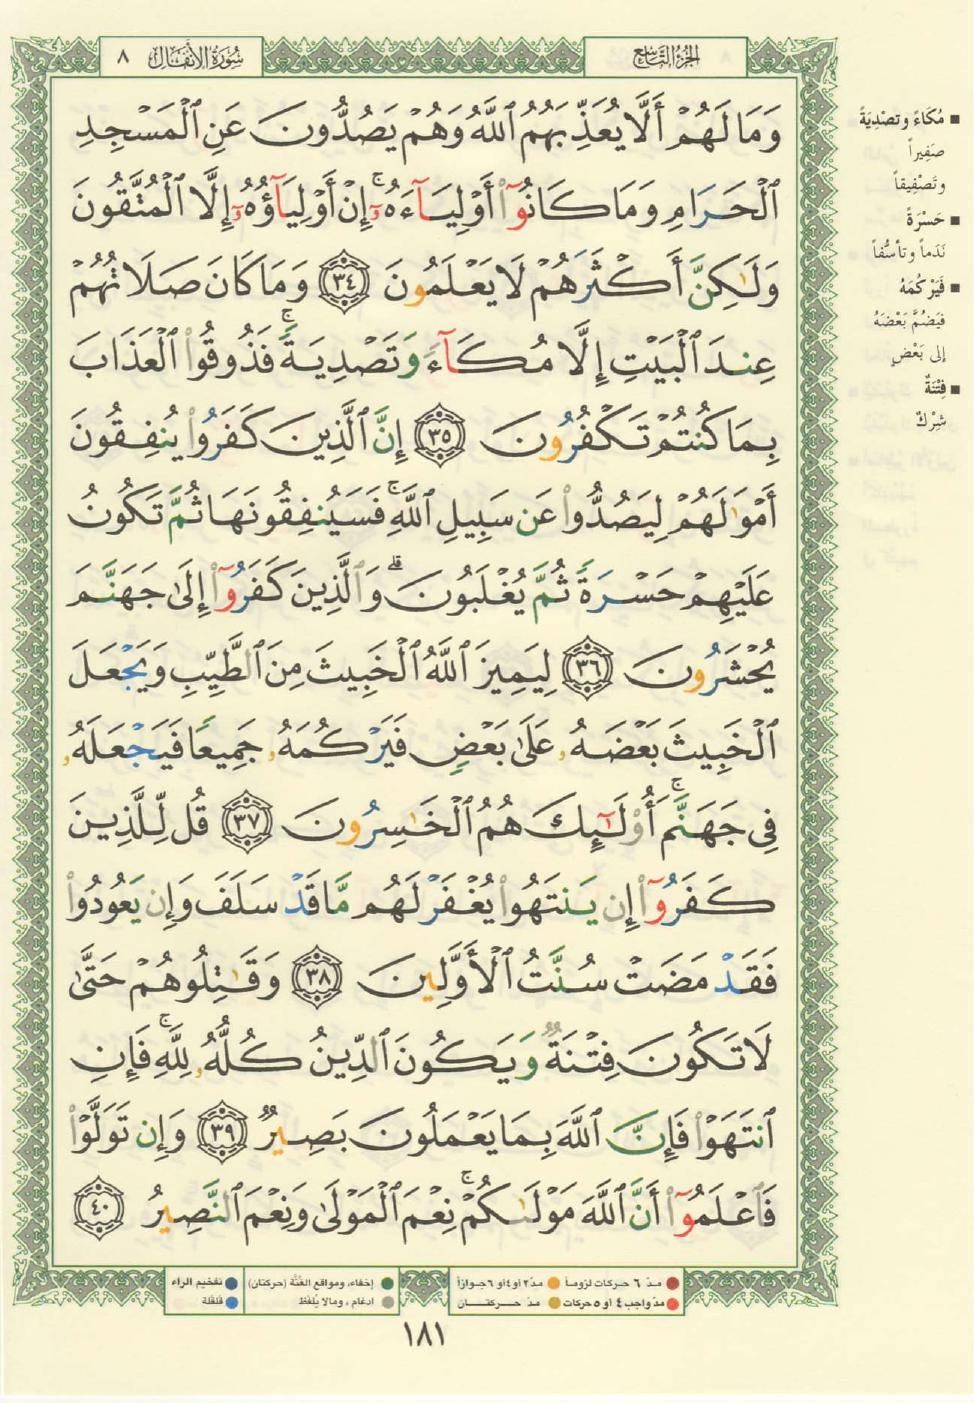 سُورَةُ الأَنفَال ٨
الجُزْءُ التَّاسِعُ
وَمَا لَهُمْ أَلَّا يُعَذِّبَهُمُ ٱللَّهُ وَهُمْ يَصُدُّونَ عَنِ ٱلْمَسْجِدِ
ٱلْحَرَامِ وَمَا كَانُوٓا۟ أَوْلِيَآءَهُۥٓ ۚ إِنْ أَوْلِيَآؤُهُۥٓ إِلَّا ٱلْمُتَّقُونَ
وَلَـٰكِنَّ أَكْثَرَهُمْ لَا يَعْلَمُونَ ٣٤ وَمَا كَانَ صَلَاتُهُمْ
عِندَ ٱلْبَيْتِ إِلَّا مُكَآءً وَتَصْدِيَةً ۚ فَذُوقُوا۟ ٱلْعَذَابَ
بِمَا كُنتُمْ تَكْفُرُونَ ٣٥ إِنَّ ٱلَّذِينَ كَفَرُوا۟ يُنفِقُونَ
أَمْوَٰلَهُمْ لِيَصُدُّوا۟ عَن سَبِيلِ ٱللَّهِ ۚ فَسَيُنفِقُونَهَا ثُمَّ تَكُونُ
عَلَيْهِمْ حَسْرَةً ثُمَّ يُغْلَبُونَ ۗ وَٱلَّذِينَ كَفَرُوٓا۟ إِلَىٰ جَهَنَّمَ
يُحْشَرُونَ ٣٦ لِيَمِيزَ ٱللَّهُ ٱلْخَبِيثَ مِنَ ٱلطَّيِّبِ وَيَجْعَلَ
ٱلْخَبِيثَ بَعْضَهُۥ عَلَىٰ بَعْضٍ فَيَرْكُمَهُۥ جَمِيعًا فَيَجْعَلَهُۥ
فِى جَهَنَّمَ ۚ أُو۟لَـٰٓئِكَ هُمُ ٱلْخَـٰسِرُونَ ٣٧ قُل لِّلَّذِينَ
كَفَرُوٓا۟ إِن يَنتَهُوا۟ يُغْفَرْ لَهُم مَّا قَدْ سَلَفَ وَإِن يَعُودُوا۟
فَقَدْ مَضَتْ سُنَّتُ ٱلْأَوَّلِينَ ٣٨ وَقَـٰتِلُوهُمْ حَتَّىٰ
لَا تَكُونَ فِتْنَةٌ وَيَكُونَ ٱلدِّينُ كُلُّهُۥ لِلَّهِ ۚ فَإِنِ
ٱنتَهَوْا۟ فَإِنَّ ٱللَّهَ بِمَا يَعْمَلُونَ بَصِيرٌ ٣٩ وَإِن تَوَلَّوْا۟
فَٱعْلَمُوٓا۟ أَنَّ ٱللَّهَ مَوْلَىٰكُمْ ۚ نِعْمَ ٱلْمَوْلَىٰ وَنِعْمَ ٱلنَّصِيرُ ٤٠
■ مُكَاءً وتَصْدِيَةً
صَفِيراً
وتَصْفِيقاً
■ حَسْرَةً
نَدَماً وتأسُّفاً
■ فَيَرْكُمَهُ
فيَضُمَّ بَعْضَهُ
إلى بَعْضٍ
■ فِتْنَةٌ
شِرْكٌ
● مدّ ٦ حركات لزوماً ● مدّ ٢ أو ٤ أو ٦ جوازاً
● مدّ واجب ٤ أو ٥ حركات ● مدّ حركتان
● إخفاء، ومواقع الغُنَّة (حركتان)
● ادغام ، ومالا يُلفَظ
● تفخيم الراء
● قلقلة
١٨١